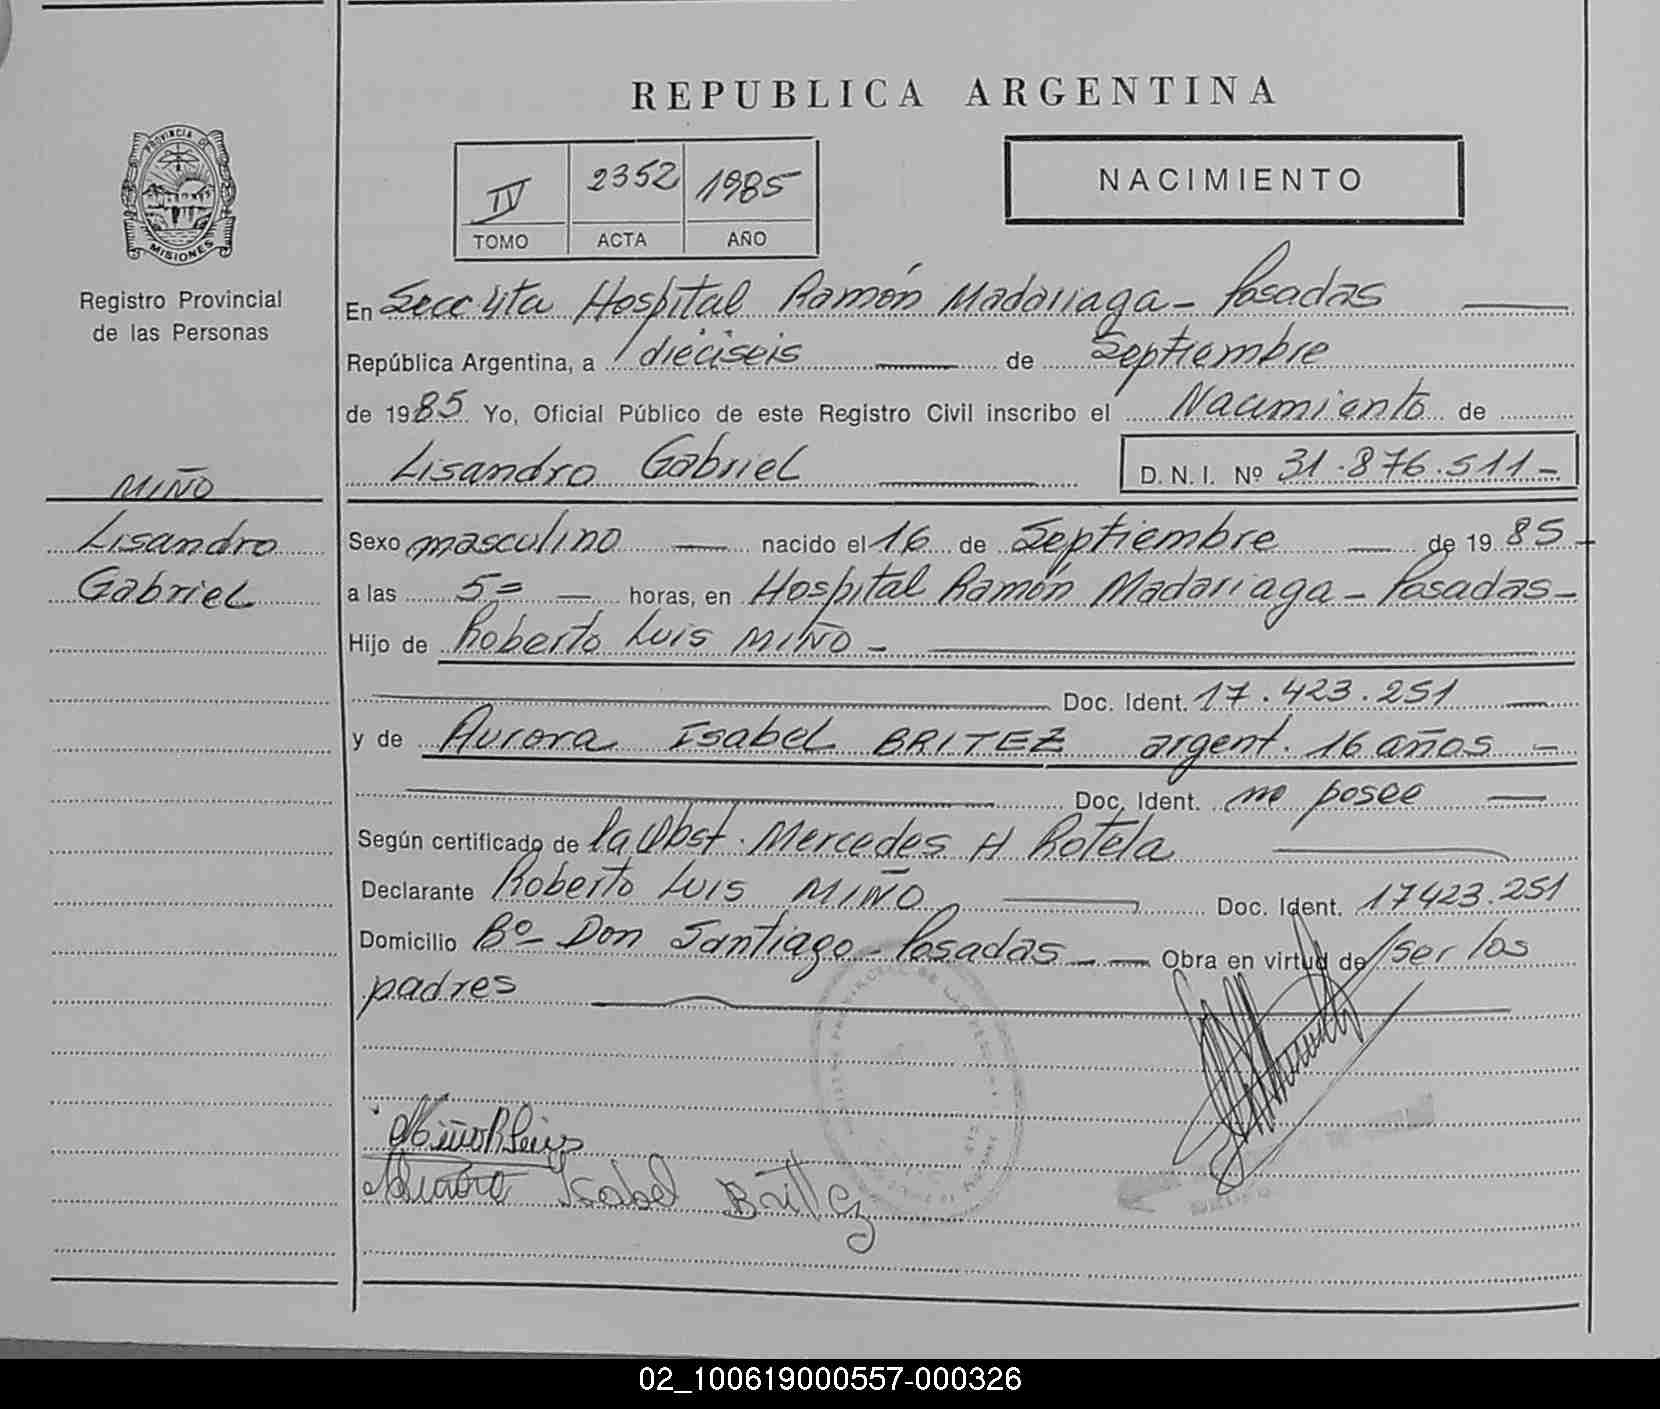 REPUBLICA ARGENTINA
PROVINCIA DE
MISIONES
Registro Provincial
de las Personas
IV 2352 1985
TOMO ACTA AÑO
NACIMIENTO
En Secc 4ta Hospital Ramón Madariaga - Posadas
República Argentina, a dieciseis de Septiembre
de 1985 Yo, Oficial Público de este Registro Civil inscribo el Nacimiento de
Lisandro Gabriel D.N.I. Nº 31.876.511-
MIÑO
Lisandro
Gabriel
Sexo masculino nacido el 16 de Septiembre de 1985
a las 5= horas, en Hospital Ramón Madariaga - Posadas -
Hijo de Roberto Luis MIÑO -
Doc. Ident. 17.423.251
y de Aurora Isabel BRITEZ argent. 16 años -
Doc. Ident. no posee
Según certificado de la Obst. Mercedes H Rotela
Declarante Roberto Luis MIÑO Doc. Ident. 17423.251
Domicilio Bº- Don Santiago - Posadas - Obra en virtud de ser los
padres
Miño R Luis
Aurora Isabel Britez
02_100619000557-000326